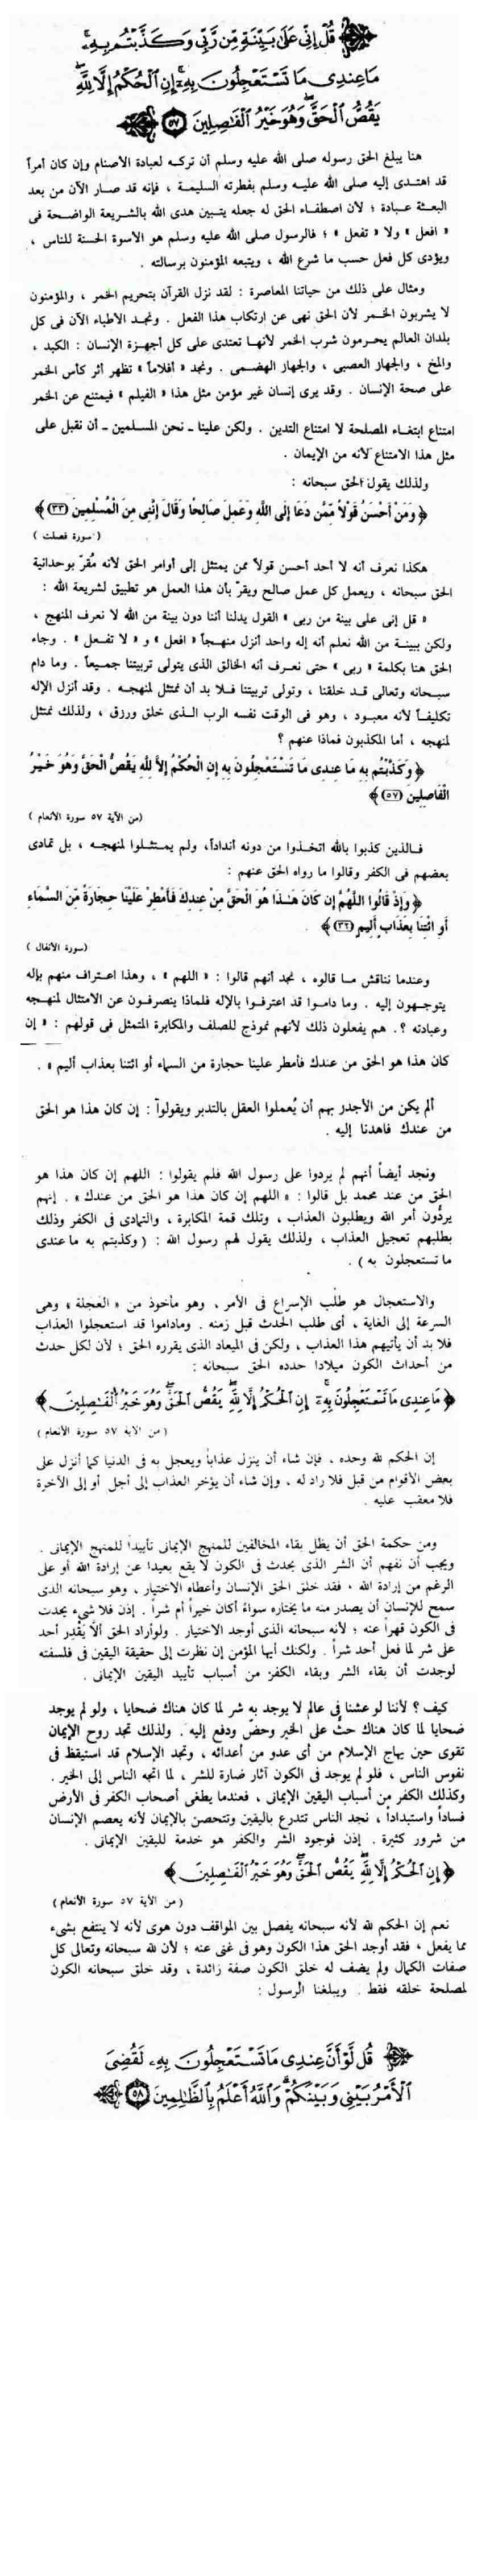 قُلْ إِنِّي عَلَىٰ بَيِّنَةٍ مِّن رَّبِّي وَكَذَّبْتُم بِهِۦ
مَا عِندِى مَا تَسْتَعْجِلُونَ بِهِۦٓ إِنِ ٱلْحُكْمُ إِلَّا لِلَّهِ
يَقُصُّ ٱلْحَقَّ وَهُوَ خَيْرُ ٱلْفَٰصِلِينَ ٥٧
هنا يبلغ الحق رسوله صلى الله عليه وسلم أن تركه لعبادة الأصنام وإن كان أمراً
قد اهتدى إليه صلى الله عليه وسلم بفطرته السليمة ، فإنه قد صار الآن من بعد
البعثة عبادة ؛ لأن اصطفاء الحق له جعله يتبين هدى الله بالشريعة الواضحة فى
« افعل » ولا « تفعل » ؛ فالرسول صلى الله عليه وسلم هو الأسوة الحسنة للناس ،
ويؤدى كل فعل حسب ما شرع الله ، ويتبعه المؤمنون برسالته .
ومثال على ذلك من حياتنا المعاصرة : لقد نزل القرآن بتحريم الخمر ، والمؤمنون
لا يشربون الخمر لأن الحق نهى عن ارتكاب هذا الفعل . ونجد الأطباء الآن فى كل
بلدان العالم يحرمون شرب الخمر لأنها تعتدى على كل أجهزة الإنسان : الكبد ،
والمخ ، والجهاز العصبى ، والجهاز الهضمى . ونجد « أفلاماً » تظهر أثر كأس الخمر
على صحة الإنسان . وقد يرى إنسان غير مؤمن مثل هذا « الفيلم » فيمتنع عن الخمر
امتناع ابتغاء المصلحة لا امتناع التدين . ولكن علينا ـ نحن المسلمين ـ أن نقبل على
مثل هذا الامتناع لأنه من الإيمان .
ولذلك يقول الحق سبحانه :
﴿ وَمَنْ أَحْسَنُ قَوْلاً مِّمَّن دَعَا إِلَى اللَّهِ وَعَمِلَ صَالِحًا وَقَالَ إِنَّنِى مِنَ الْمُسْلِمِينَ (٣٣) ﴾
( سورة فصلت )
هكذا نعرف أنه لا أحد أحسن قولاً ممن يمتثل إلى أوامر الحق لأنه مُقرّ بوحدانية
الحق سبحانه ، ويعمل كل عمل صالح ويقرّ بأن هذا العمل هو تطبيق لشريعة الله :
« قل إنى على بينة من ربى » القول يدلنا أننا دون بينة من الله لا نعرف المنهج ،
ولكن ببينة من الله نعلم أنه إله واحد أنزل منهجاً « افعل » و « لا تفعل » . وجاء
الحق هنا بكلمة « ربى » حتى نعرف أنه الخالق الذى يتولى تربيتنا جميعاً . وما دام
سبحانه وتعالى قد خلقنا ، وتولى تربيتنا فلا بد أن نمتثل لمنهجه . وقد أنزل الإله
تكليفاً لأنه معبود ، وهو فى الوقت نفسه الرب الذى خلق ورزق ، ولذلك نمتثل
لمنهجه ، أما المكذبون فماذا عنهم ؟
﴿ وَكَذَّبْتُم بِهِ مَا عِندِى مَا تَسْتَعْجِلُونَ بِهِ إِنِ الْحُكْمُ إِلاَّ لِلَّهِ يَقُصُّ الْحَقَّ وَهُوَ خَيْرُ
الْفَاصِلِينَ (٥٧) ﴾
(من الآية ٥٧ سورة الأنعام )
فالذين كذبوا بالله اتخذوا من دونه أنداداً، ولم يمتثلوا لمنهجه ، بل تمادى
بعضهم فى الكفر وقالوا ما رواه الحق عنهم :
﴿ وَإِذْ قَالُوا اللَّهُمَّ إِن كَانَ هَـٰذَا هُوَ الْحَقَّ مِنْ عِندِكَ فَأَمْطِرْ عَلَيْنَا حِجَارَةً مِّنَ السَّمَاءِ
أَوِ ائْتِنَا بِعَذَابٍ أَلِيمٍ (٣٢) ﴾
(سورة الأنفال )
وعندما نناقش ما قالوه ، نجد أنهم قالوا : « اللهم » ، وهذا اعتراف منهم بإله
يتوجهون إليه . وما داموا قد اعترفوا بالإله فلماذا ينصرفون عن الامتثال لمنهجه
وعبادته ؟. هم يفعلون ذلك لأنهم نموذج للصلف والمكابرة المتمثل فى قولهم : « إن
كان هذا هو الحق من عندك فأمطر علينا حجارة من السماء أو ائتنا بعذاب أليم » .
ألم يكن من الأجدر بهم أن يُعملوا العقل بالتدبر ويقولوا : إن كان هذا هو الحق
من عندك فاهدنا إليه .
ونجد أيضاً أنهم لم يردوا على رسول الله فلم يقولوا : اللهم إن كان هذا هو
الحق من عند محمد بل قالوا : « اللهم إن كان هذا هو الحق من عندك » . إنهم
يردُّون أمر الله ويطلبون العذاب ، وتلك قمة المكابرة ، والتمادى فى الكفر وذلك
بطلبهم تعجيل العذاب ، ولذلك يقول لهم رسول الله : ( وكذبتم به ما عندى
ما تستعجلون به ) .
والاستعجال هو طلب الإسراع فى الأمر ، وهو مأخوذ من « العجلة » وهى
السرعة إلى الغاية ، أى طلب الحدث قبل زمنه . وماداموا قد استعجلوا العذاب
فلا بد أن يأتيهم هذا العذاب ، ولكن فى الميعاد الذى يقرره الحق ؛ لأن لكل حدث
من أحداث الكون ميلادا حدده الحق سبحانه :
﴿ مَا عِندِى مَا تَسْتَعْجِلُونَ بِهِۦٓ إِنِ ٱلْحُكْمُ إِلَّا لِلَّهِ يَقُصُّ ٱلْحَقَّ وَهُوَ خَيْرُ ٱلْفَٰصِلِينَ ﴾
( من الآية ٥٧ سورة الأنعام )
إن الحكم لله وحده ، فإن شاء أن ينزل عذابا ويعجل به فى الدنيا كما أنزل على
بعض الأقوام من قبل فلا راد له ، وإن شاء أن يؤخر العذاب إلى أجل أو إلى الآخرة
فلا معقب عليه .
ومن حكمة الحق أن يظل بقاء المخالفين للمنهج الإيمانى تأييدا للمنهج الإيمانى .
ويجب أن نفهم أن الشر الذى يحدث فى الكون لا يقع بعيدا عن إرادة الله أو على
الرغم من إرادة الله ، فقد خلق الحق الإنسان وأعطاه الاختيار ، وهو سبحانه الذى
سمح للإنسان أن يصدر منه ما يختاره سواءً أكان خيراً أم شراً . إذن فلا شىء يحدث
فى الكون قهراً عنه ؛ لأنه سبحانه الذى أوجد الاختيار . ولو أراد الحق ألّا يَقْدِر أحد
على شر لما فعل أحد شراً . ولكنك أيها المؤمن إن نظرت إلى حقيقة اليقين فى فلسفته
لوجدت أن بقاء الشر وبقاء الكفر من أسباب تأييد اليقين الإيمانى .
كيف ؟ لأننا لو عشنا فى عالم لا يوجد به شر لما كان هناك ضحايا ، ولو لم يوجد
ضحايا لما كان هناك حثٌّ على الخير وحضّ ودفع إليه . ولذلك تجد روح الإيمان
تقوى حين يهاج الإسلام من أى عدو من أعدائه ، وتجد الإسلام قد استيقظ فى
نفوس الناس ، فلو لم يوجد فى الكون آثار ضارة للشر ، لما اتجه الناس إلى الخير .
وكذلك الكفر من أسباب اليقين الإيمانى ، فعندما يطغى أصحاب الكفر فى الأرض
فساداً واستبداداً ، نجد الناس تتدرع باليقين وتتحصن بالإيمان لأنه يعصم الإنسان
من شرور كثيرة . إذن فوجود الشر والكفر هو خدمة لليقين الإيمانى .
﴿ إِنِ ٱلْحُكْمُ إِلَّا لِلَّهِ يَقُصُّ ٱلْحَقَّ وَهُوَ خَيْرُ ٱلْفَٰصِلِينَ ﴾
( من الآية ٥٧ سورة الأنعام )
نعم إن الحكم لله لأنه سبحانه يفصل بين المواقف دون هوى لأنه لا ينتفع بشىء
مما يفعل ، فقد أوجد الحق هذا الكون وهو فى غنى عنه ؛ لأن لله سبحانه وتعالى كل
صفات الكمال ولم يضف له خلق الكون صفة زائدة ، وقد خلق سبحانه الكون
لمصلحة خلقه فقط . ويبلغنا الرسول :
قُل لَّوْ أَنَّ عِندِى مَا تَسْتَعْجِلُونَ بِهِۦ لَقُضِىَ
ٱلْأَمْرُ بَيْنِى وَبَيْنَكُمْ وَٱللَّهُ أَعْلَمُ بِٱلظَّٰلِمِينَ ٥٨